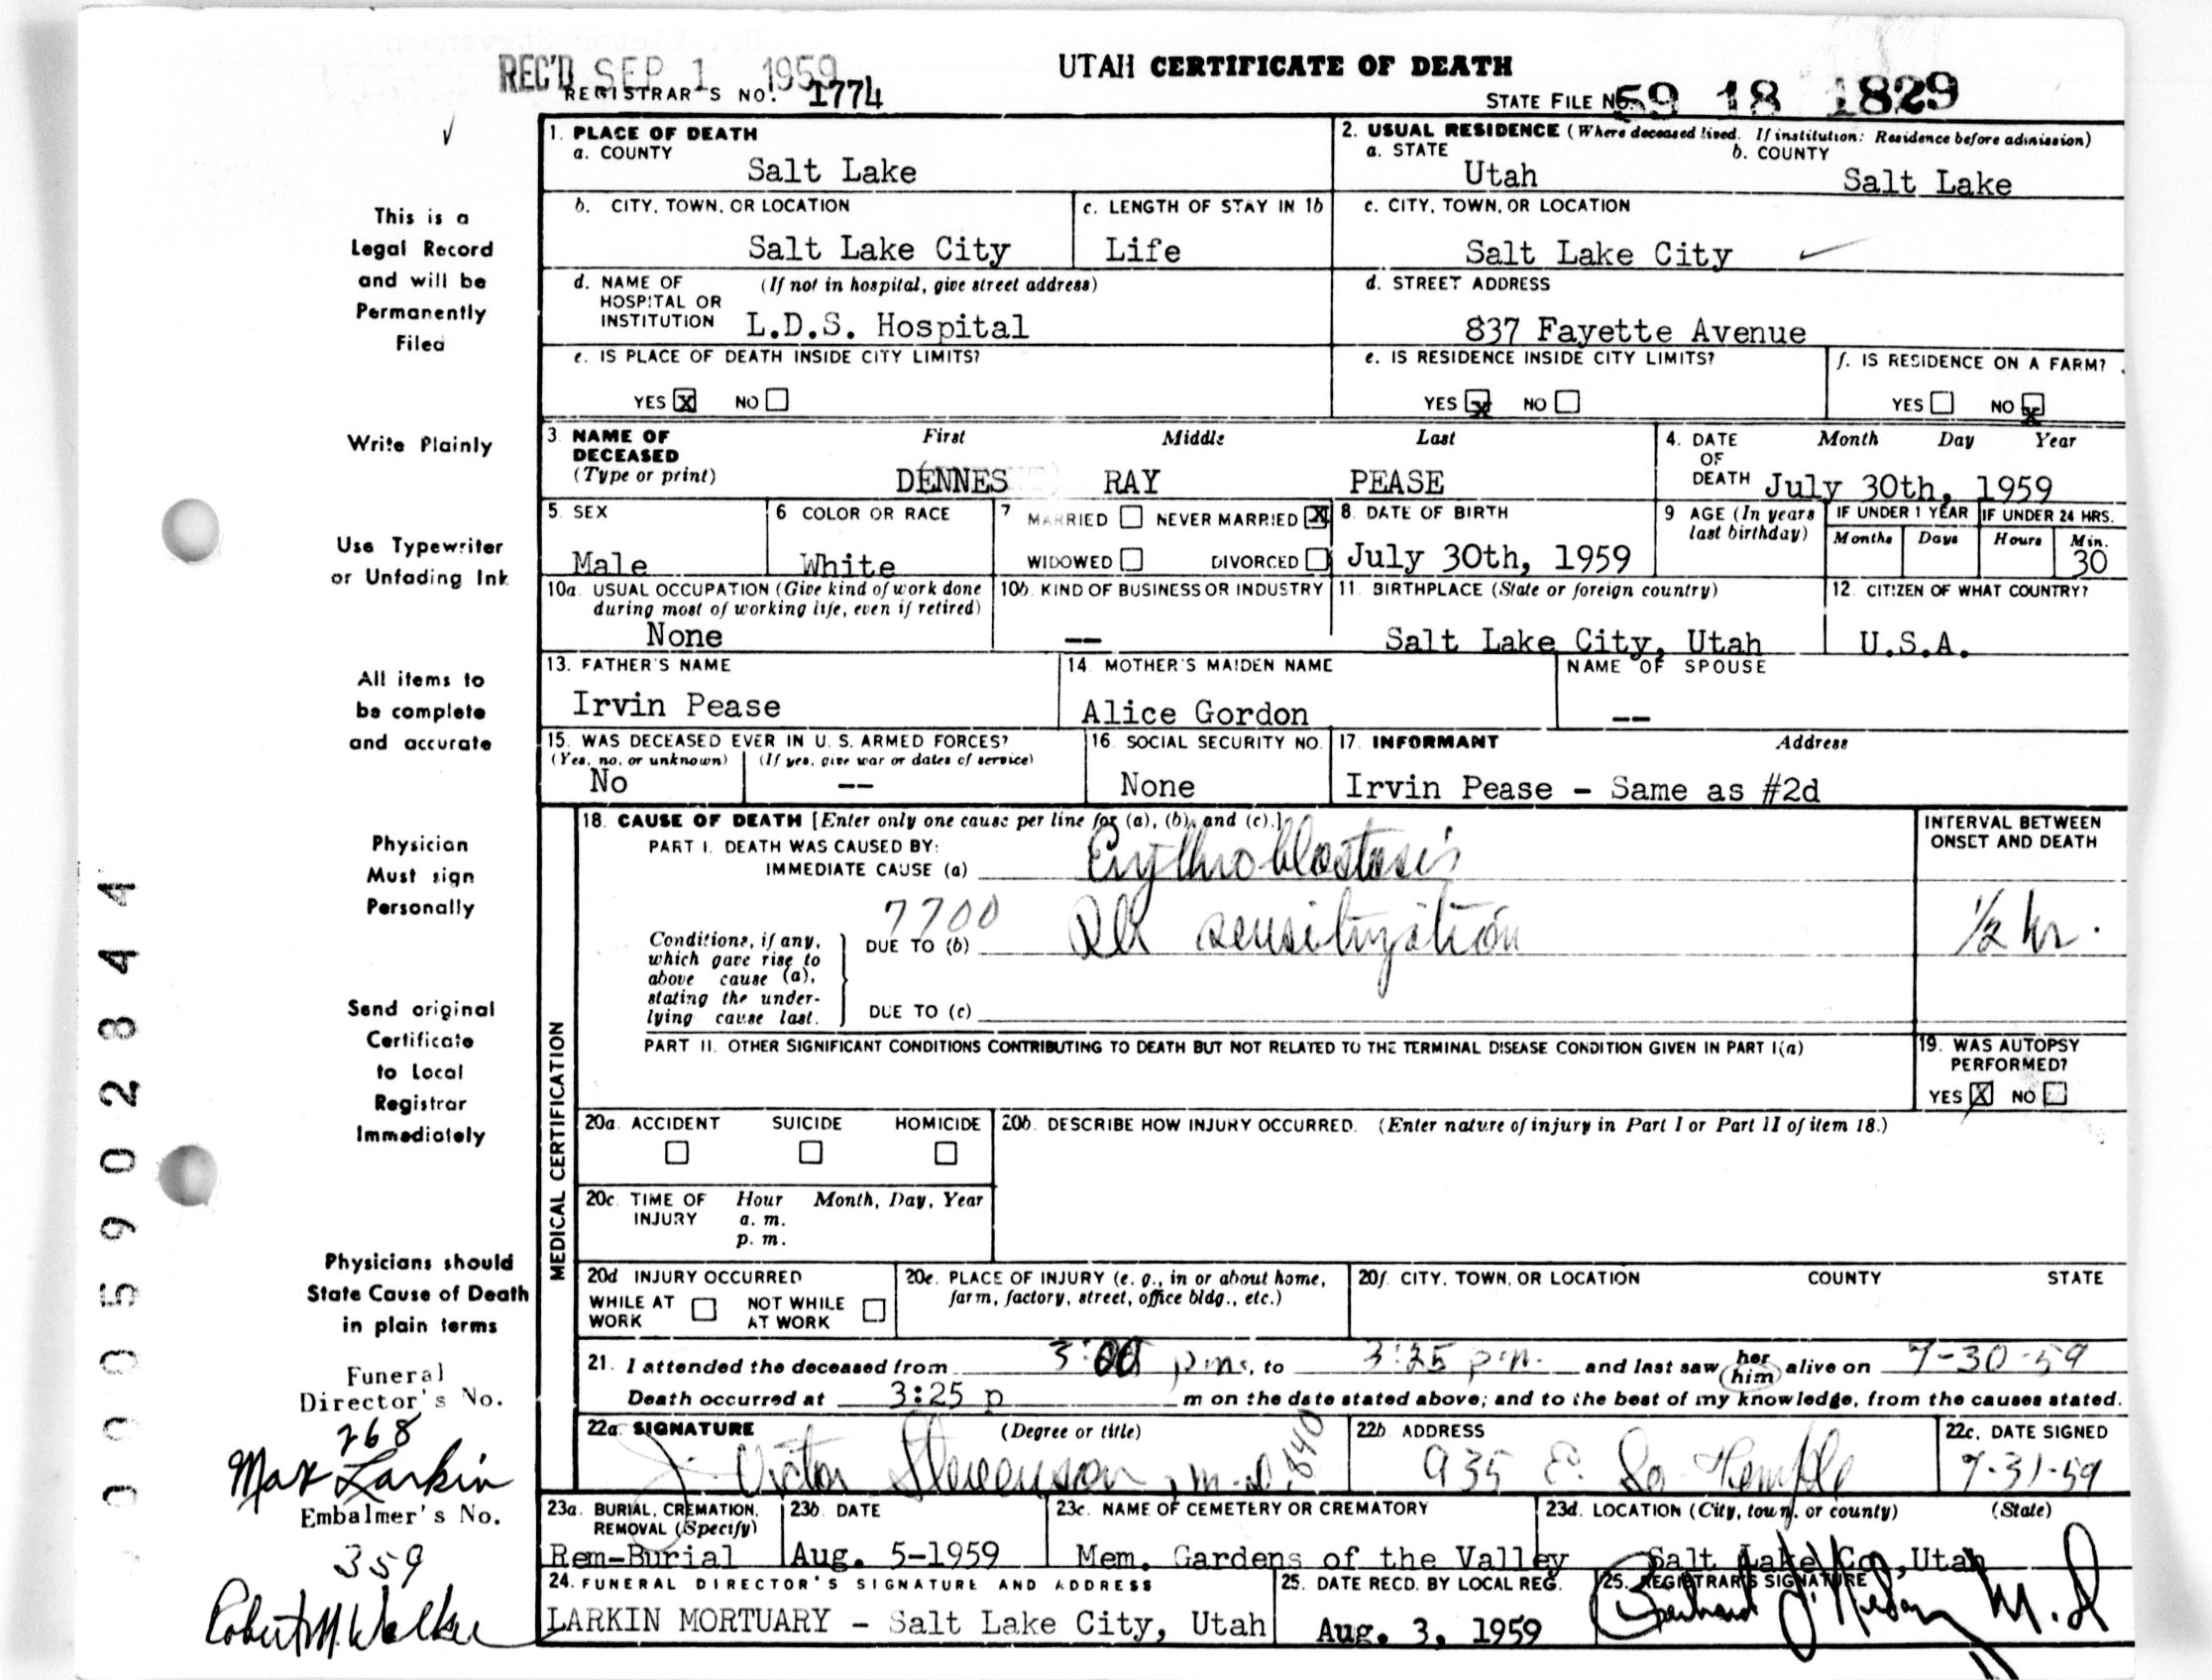 REC'D SEP 1 1959
REGISTRAR'S NO. 1774
UTAH CERTIFICATE OF DEATH
STATE FILE NO. 59 18 1829
This is a
Legal Record
and will be
Permanently
Filed
Write Plainly
Use Typewriter
or Unfading Ink
All items to
be complete
and accurate
Physician
Must sign
Personally
Send original
Certificate
to Local
Registrar
Immediately
Physicians should
State Cause of Death
in plain terms
Funeral
Director's No.
268
Max Larkin
Embalmer's No.
359
Robert M. Walker
0005902844
1. PLACE OF DEATH
a. COUNTY
Salt Lake
2. USUAL RESIDENCE (Where deceased lived. If institution: Residence before admission)
a. STATE b. COUNTY
Utah Salt Lake
b. CITY, TOWN, OR LOCATION
Salt Lake City
c. LENGTH OF STAY IN 1b
Life
c. CITY, TOWN, OR LOCATION
Salt Lake City
d. NAME OF (If not in hospital, give street address)
HOSPITAL OR
INSTITUTION L.D.S. Hospital
d. STREET ADDRESS
837 Fayette Avenue
e. IS PLACE OF DEATH INSIDE CITY LIMITS?
YES X NO
e. IS RESIDENCE INSIDE CITY LIMITS?
YES X NO
f. IS RESIDENCE ON A FARM?
YES NO X
3. NAME OF First Middle Last
DECEASED
(Type or print) DENNES RAY PEASE
4. DATE Month Day Year
OF
DEATH July 30th, 1959
5. SEX
Male
6 COLOR OR RACE
White
7 MARRIED NEVER MARRIED X
WIDOWED DIVORCED
8. DATE OF BIRTH
July 30th, 1959
9 AGE (In years
last birthday)
IF UNDER 1 YEAR IF UNDER 24 HRS.
Months Days Hours Min.
30
10a. USUAL OCCUPATION (Give kind of work done
during most of working life, even if retired)
None
10b. KIND OF BUSINESS OR INDUSTRY
--
11. BIRTHPLACE (State or foreign country)
Salt Lake City, Utah
12. CITIZEN OF WHAT COUNTRY?
U.S.A.
13. FATHER'S NAME
Irvin Pease
14. MOTHER'S MAIDEN NAME
Alice Gordon
NAME OF SPOUSE
--
15. WAS DECEASED EVER IN U. S. ARMED FORCES?
(Yes, no, or unknown) (If yes, give war or dates of service)
No --
16. SOCIAL SECURITY NO.
None
17. INFORMANT Address
Irvin Pease - Same as #2d
MEDICAL CERTIFICATION
18. CAUSE OF DEATH [Enter only one cause per line for (a), (b), and (c).]
PART I. DEATH WAS CAUSED BY:
IMMEDIATE CAUSE (a) Erythroblastosis
7700
Conditions, if any,
which gave rise to
above cause (a),
stating the under-
lying cause last.
DUE TO (b) Rh sensitization
DUE TO (c)
INTERVAL BETWEEN
ONSET AND DEATH
1/2 hr.
PART II. OTHER SIGNIFICANT CONDITIONS CONTRIBUTING TO DEATH BUT NOT RELATED TO THE TERMINAL DISEASE CONDITION GIVEN IN PART I(a)
19. WAS AUTOPSY
PERFORMED?
YES X NO
20a. ACCIDENT SUICIDE HOMICIDE
20b. DESCRIBE HOW INJURY OCCURRED. (Enter nature of injury in Part I or Part II of item 18.)
20c. TIME OF Hour Month, Day, Year
INJURY a. m.
p. m.
20d INJURY OCCURRED
WHILE AT NOT WHILE
WORK AT WORK
20e. PLACE OF INJURY (e. g., in or about home,
farm, factory, street, office bldg., etc.)
20f. CITY, TOWN, OR LOCATION COUNTY STATE
21. I attended the deceased from 3:00 p.m., to 3:25 p.m. and last saw her him alive on 7-30-59
Death occurred at 3:25 p m on the date stated above; and to the best of my knowledge, from the causes stated.
22a. SIGNATURE (Degree or title)
J. Victor Stevenson, M.D. 8140
22b. ADDRESS
935 E. So. Temple
22c. DATE SIGNED
7-31-59
23a. BURIAL, CREMATION,
REMOVAL (Specify)
Rem-Burial
23b. DATE
Aug. 5-1959
23c. NAME OF CEMETERY OR CREMATORY
Mem. Gardens of the Valley
23d. LOCATION (City, town, or county) (State)
Salt Lake Co., Utah
24. FUNERAL DIRECTOR'S SIGNATURE AND ADDRESS
LARKIN MORTUARY - Salt Lake City, Utah
25. DATE RECD. BY LOCAL REG.
Aug. 3, 1959
25. REGISTRAR'S SIGNATURE
M.D.